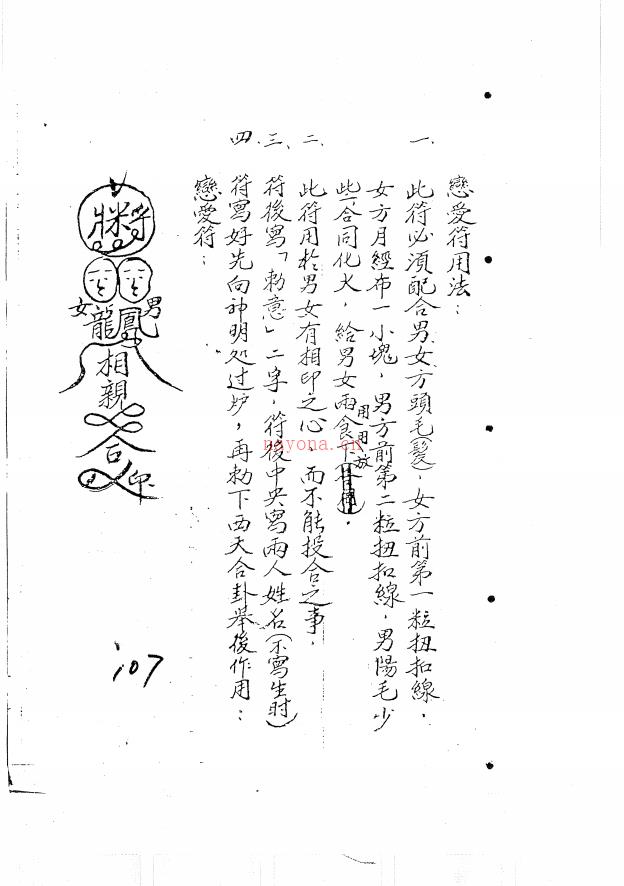 戀愛符用法：
一、此符必須配合男女方頭毛(髮)，女方前第一粒扭扣線，
女方月經布一小塊，男方前第二粒扭扣線，男陽毛少
些，合同化火，給男女兩食
用用放
二、此符用於男女有相印之心，而不能投合之事，
三、符後寫「勅意」二字，符後中央寫兩人姓名(不寫生时)
四、符寫好先向神明処过炉，再勅下西天合卦举後作用：
戀愛符：
男
女
鳳
龍
相親
合
印
107
nayona.cn